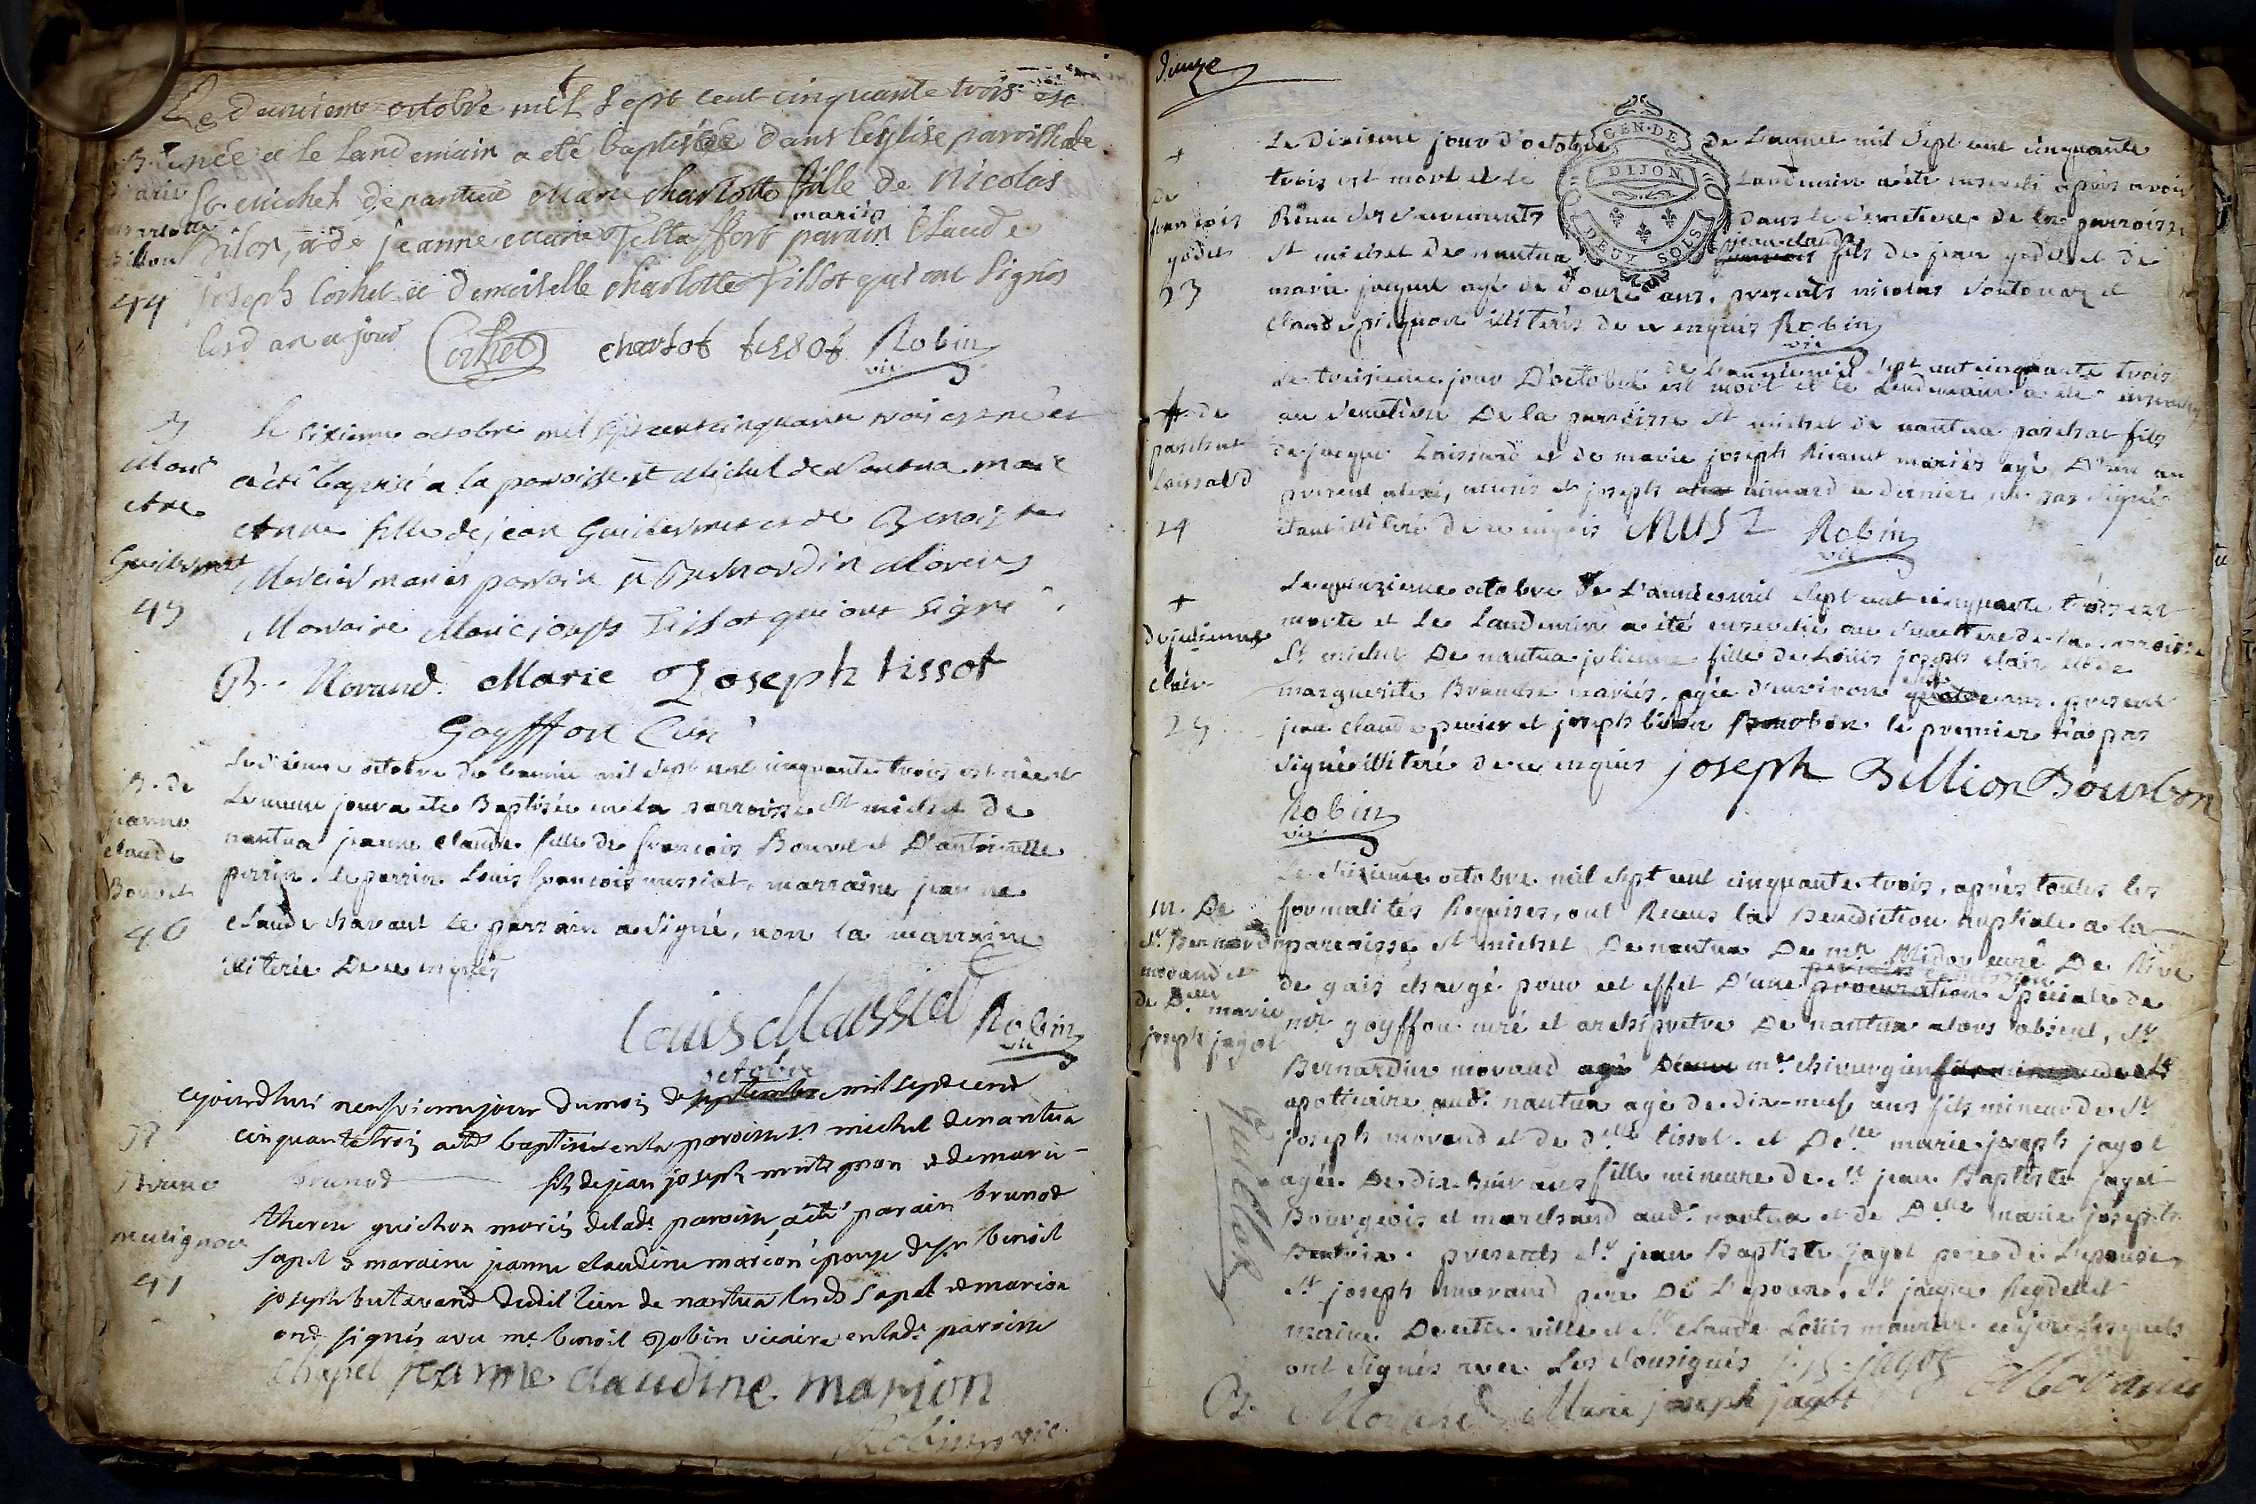 Le deuxieme octobre mil sept cent cinquante trois est
B. née et le landemain a eté baptisée dans leglise paroissiale
marie St michel de nantua Marie Charlotte fille de Nicolas
charlotte mariés
Billon Bilon, et de jeanne Marie parain Claude
44 joseph Cochet et demoiselle charlotte Tissot qui ont signés
lesd an et jour Cochet charlot tissot Robin
vic
B le sixieme octobre mil sept cent cinquante trois est née et
Marie a été baptisé a la paroisse st Michel de Nantua marie
Anne Anne fille de jean Guillermet et de Benoite
Guillermet Mercier mariés parrain sr Bernardin Morand
45 Marraine Marie joseph Tissot qui ont signé
B. Morand Marie Joseph tissot
Goyffon Curé
B. de Le dixieme octobre de l'année mil sept cent cinquante trois est née et
jeanne le meme jour a eté Baptisée en la parroisse St michel de
claude nantua jeanne claude fille de françois Bouvet et D'antoinette
Bouvet perrin. le parrin Louis françois mussiat, marraine jeanne
46 claude chavant le parrain a signé, non la marraine
illiterée de ce enquis
Louis Mussiat Robin
vic
octobre
cejourdhui neufvieme jour du mois de septembre mil sept cent
B cinquante trois a eté baptisé en la paroisse st michel de nantua
Bruno brunod fils de jean joseph mutignon et de marie
mutignon therese guichon mariés de lade paroisse, a été parain brunod
47 sapel & maraine jeanne claudine marion épouse de sr benoit
joseph butavand dudit lieu de nantua lesds sapel et marion
ont signés avec mr benoit Robin vicaire en lade paroisse
chapel jeanne claudine marion
Robin vic.
douze
GEN. DE
DIJON
DEUX SOLS
+ Le Dixieme jour d'octobre de L'année mil sept cent cinquante
de trois est mort et le Landemain a été enseveli après avoir
françois Reçu les sacrements dans le cemetiere de la parroisse
godet St michel de nantua jean claude françois fils de jean godet et de
23 marie jaquet agé de douze ans, presents nicolas et
claude illiterés de ce enquis Robin
vic
de L'année mil sept cent cinquante trois
Le treizieme jour D'octobre est mort et le Lendemain a eté enseveli
+ de au cemetiere De la parroisse St michel de nantua paschat fils
paschat de jacque Laissard et de marie joseph mariés agé D'un an
Laissard present alexi, musi et joseph aimard le dernier n'a pas signé
24 étant illiteré de ce enquis MUSI Robin
vic
+ Le quinzieme octobre de L'année mil sept cent cinquante trois est
de julienne morte et le Landemain a été ensevelie au cemetiere de la parroisse
clair St michel De nantua julienne fille de Loüis joseph clair et de
25 marguerite mariés, agée d'environ ans. present
jean claude perier et joseph bilion Bourbon le premier n'a pas
signé illiteré de ce enquis joseph Billion Bourbon
Robin
vic
Le seizieme octobre mil sept cent cinquante trois, après toutes les
m. De formalités Requises, ont Receus la Benediction nuptiale a la
Sr Bernardin parroisse St michel De nantua De mr Midor curé De
morand et de gais chargé pour cet effet D'une procuration speciale de
de Dlle marie mr goyffon curé et archipretre De nantua alors absent, Sr
joseph jagot Bernardin morand agé mre chirurgien
apoticaire audt nantua agé de dix-neuf ans fils mineur de Sr
joseph morand et de dlle tissot. et Delle marie-joseph jagot
agée De dix huit ans fille mineure de Sr jean Baptiste jagot
Bourgeois et marchand audt nantua et de Delle marie joseph
presents Sr jean Baptiste jagot pere de L'epouse,
Sr joseph morand pere De L'epoux, Sr jacque Reydellet
maire De cette ville et Sr claude Loüis lesquels
ont signés avec Les sousignés J. B. jagot Morand
B. Morand Marie joseph jagot